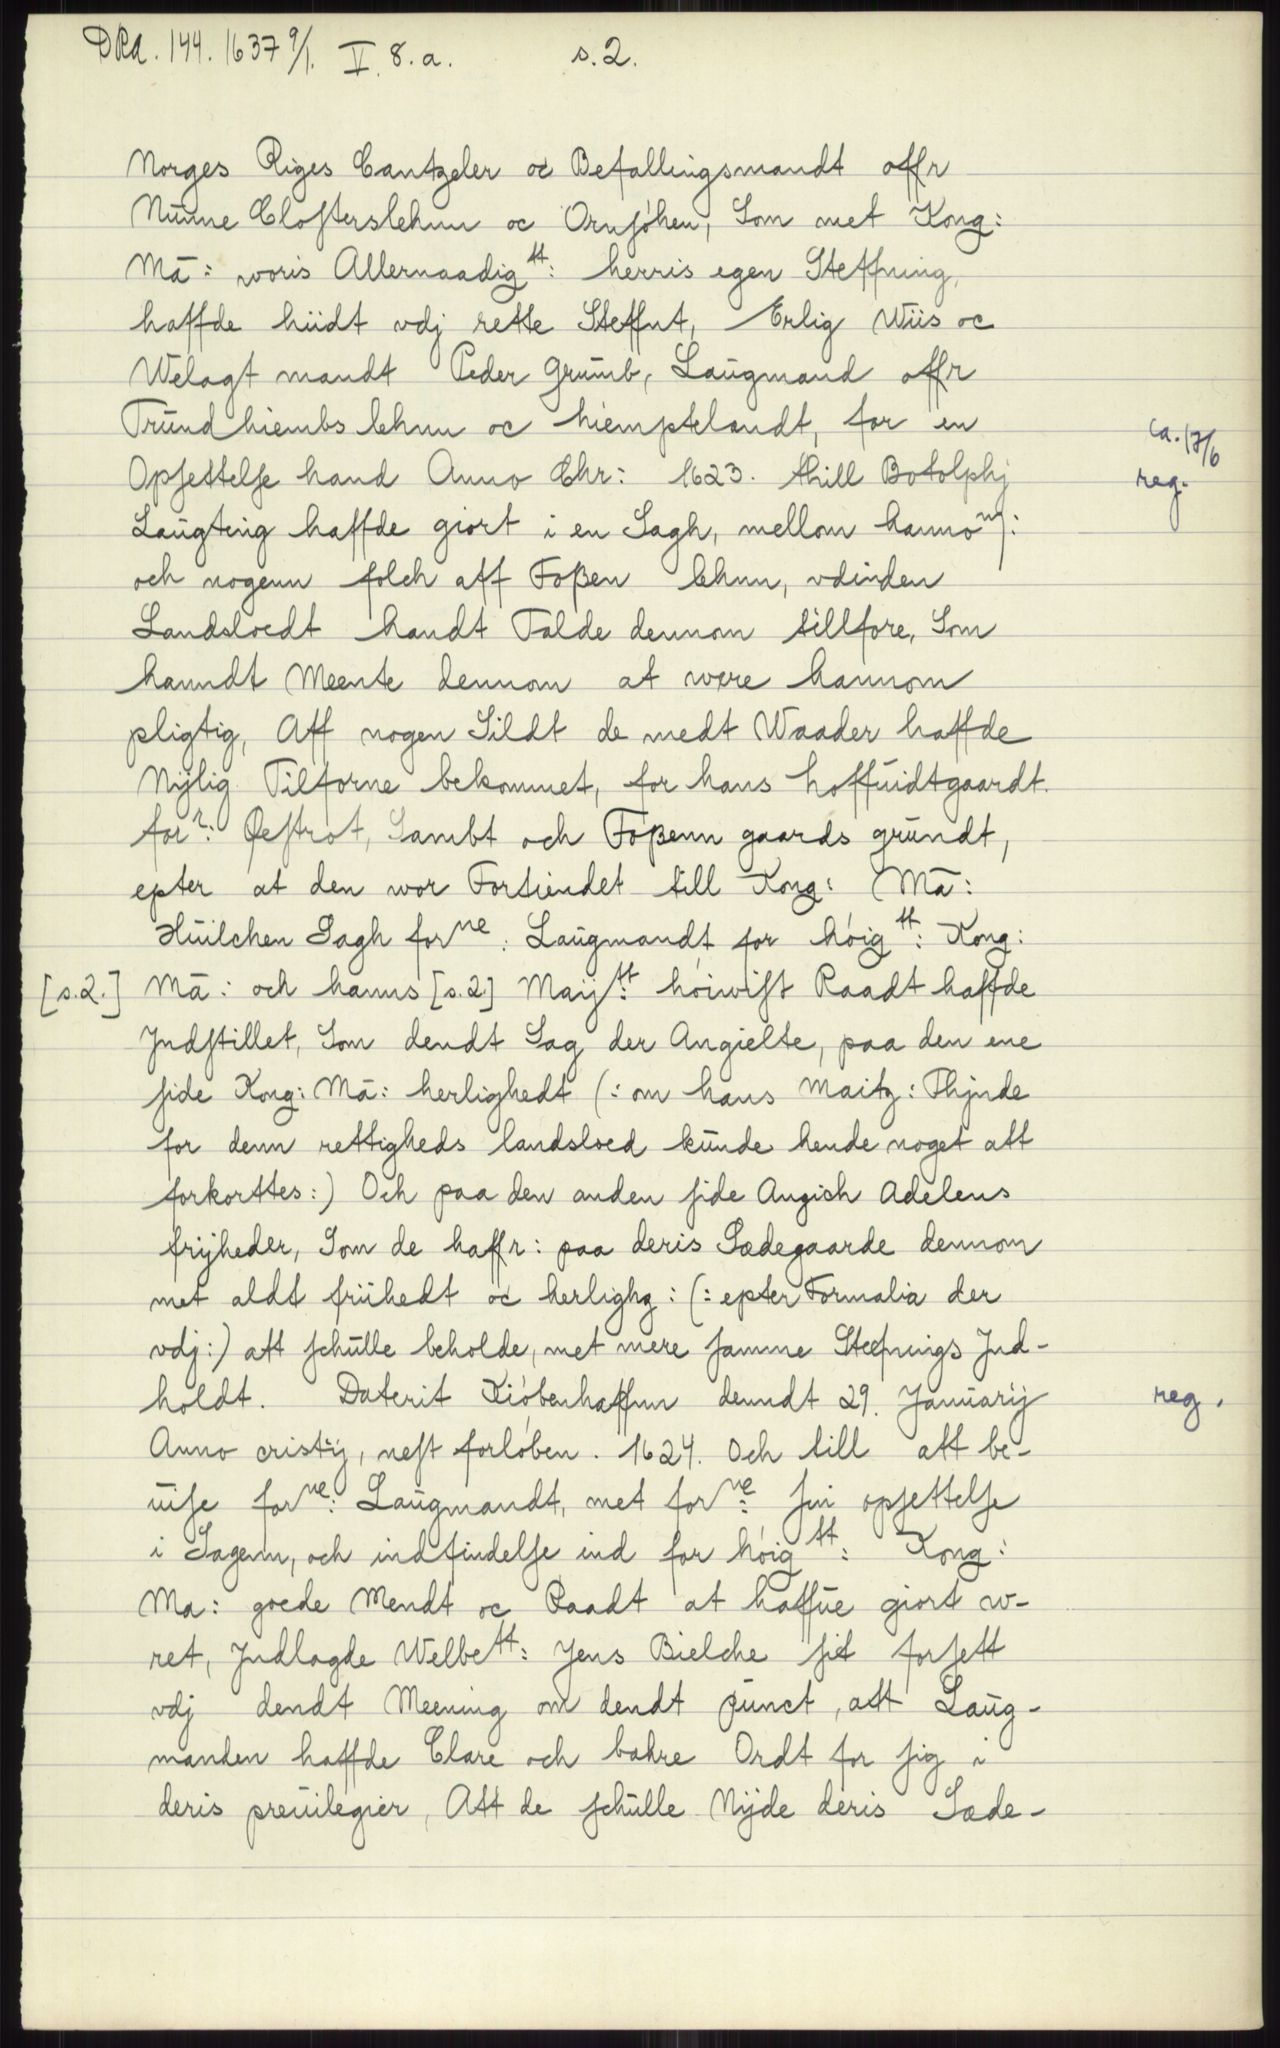 DRA. 144. 1637 9/1. V. 8. a. s. 2.
Norges Riges Cantzeler oc Befallingsmandt offr
Nunne Closterslehnn oc Ørnsøhen, Som met Kong:
Mā: woris Allernaadigst: herris egen Steffning,
haffde hiidt vdj rette Steffnt, Erlig Wiis oc
Welagt mandt Peder Grumb, Laugmand offr
Trundhiembs lehnn oc hiemptelandt, for en
Opsettelse hand Anno Chr: 1623. thill Botolphj
ca. 17/6
reg.
Laugting haffde giort i en Sagh, mellom hannom:
och nogenn folch aff Foßen lehnn, vdinden
Landsloedt handt Talde dennom tillfore, Som
hanndt Meente dennom at were hannom
pligtig, Aff nogen Sildt de medt Waader haffde
Nÿlig Tilforne bekommet, for hans hoffuidtgaardt.
forn: Øestrot, Sambt och Foßenn gaards grundt,
epter at den wor Fortiendet till Kong: Mā:
Huilchen Sagh forne: Laugmandt for høigst: Kong:
[s. 2.] Mā: och hanns [s. 2.] Mayst: høiwist Raadt haffde
Indstillet, Som dendt Sag der Angielte, paa den ene
side Kong: Mā: herlighedt (: om hans Maitz: Thjnde
for denn rettigheds landsloed kunde hende noget att
forkorttes:) Och paa den anden side Angich Adelens
frijheder, Som de haffr: paa deris Sædegaarde dennom
met aldt friihedt oc herlighz: (: epter Formalia der
vdj:) att schulle beholde, met mere samme Steefnings Ind-
holdt. Daterit Kiøbenhaffnn denndt 29. Januarij
reg.
Anno cristij, nest forløben. 1624. Och till att be-
uise forne: Laugmandt, met forne: sin opsettelse
i Sagenn, och indfindelse ind for høigst: Kong:
Ma: goede Mendt oc Raadt at haffue giort w-
ret, Indlagde Welbett: Jens Bielche sit forsett
vdj dendt Meening om dendt punct, att Laug-
manden haffde Clare och bahre Ordt for sig i
deris preuilegier, Att de schulle Nijde deris Sæde-